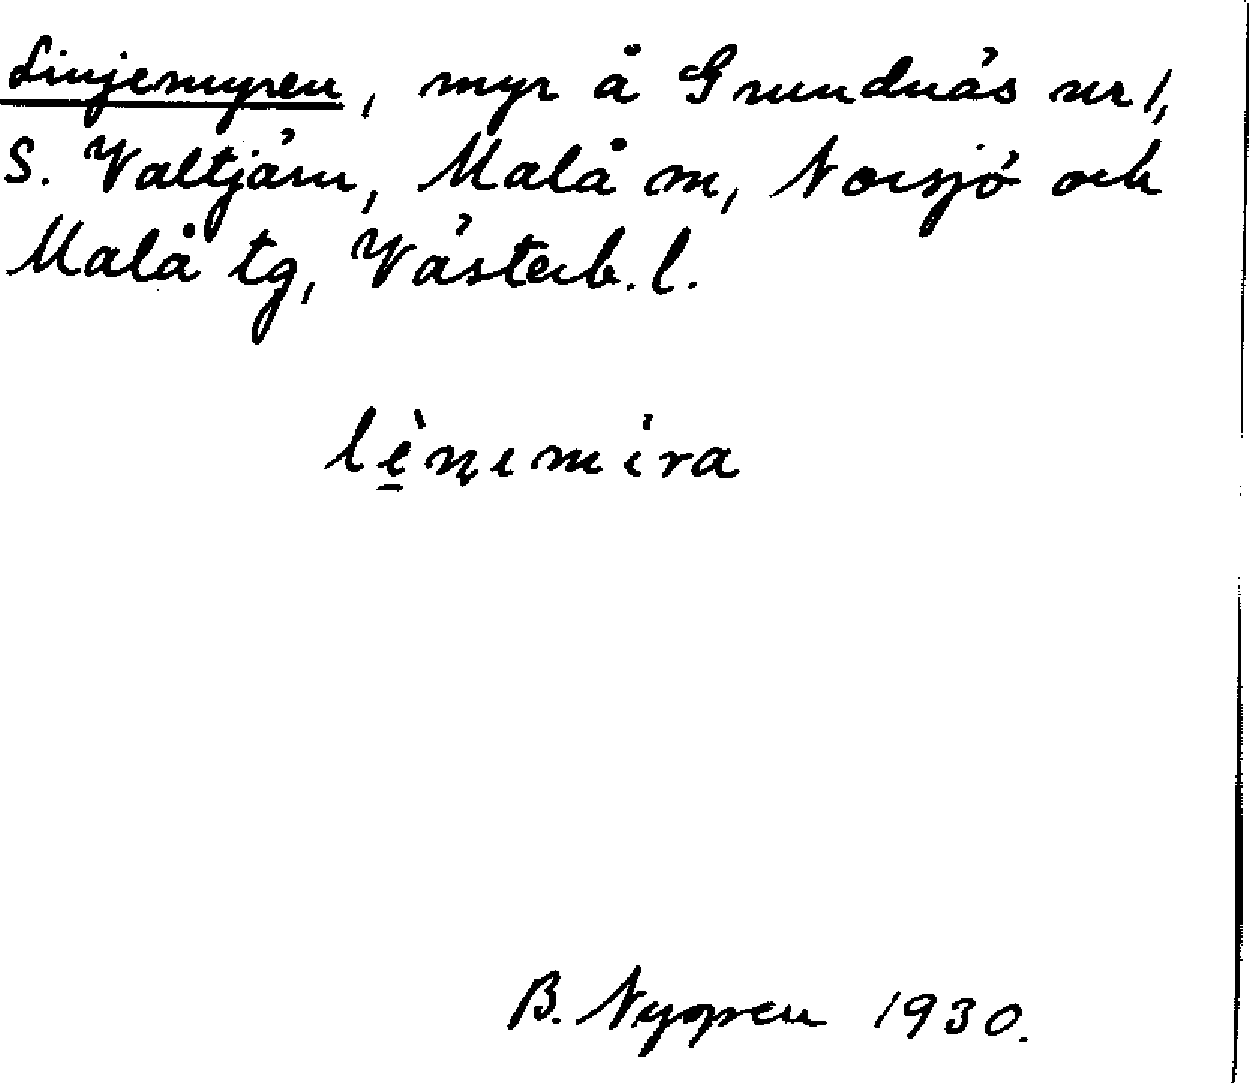 Linjemyren, myr å Grundnäs nr 1,
S. Valtjärn, Malå sn, Norsjö och
Malå tg, Västerb. l.
B. Nygren 1930.